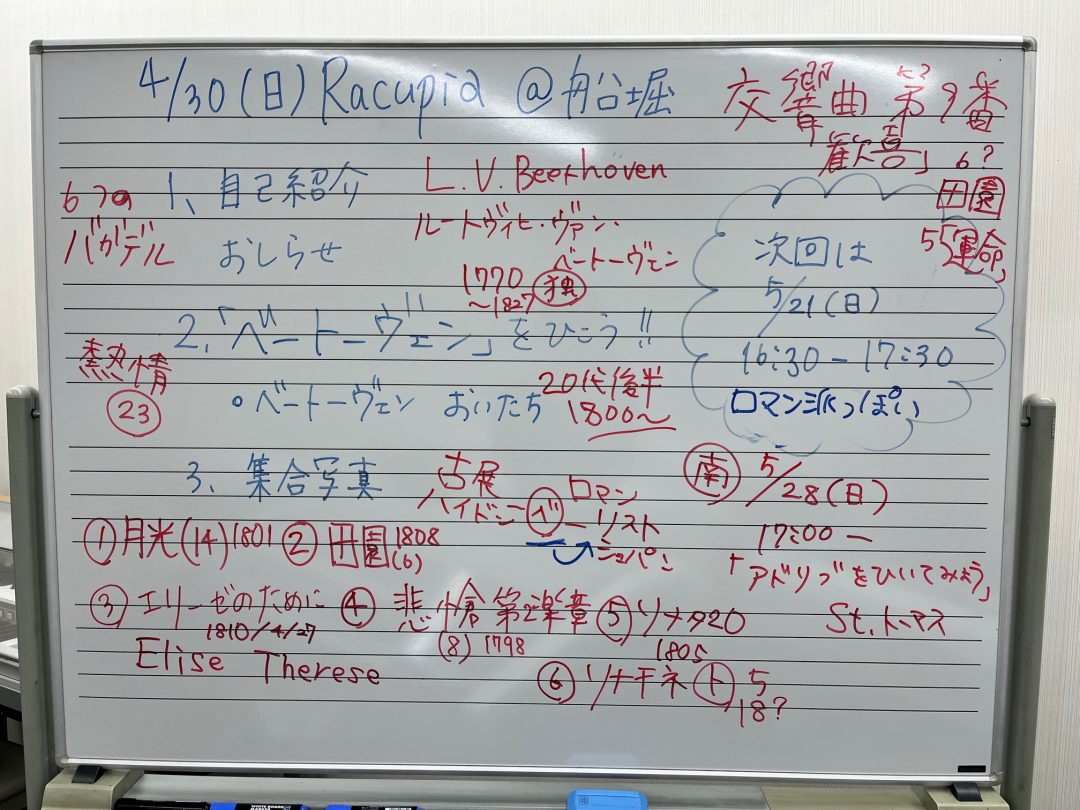 4/30(日) Racupia @船堀
交響曲 第9番
歓喜」 6?
田園
5「運命」
6つの
バガデル
1、自己紹介
L.V.Beethoven
ルートヴィヒ・ヴァン・
ベートーヴェン
おしらせ
1770
〜1827 独
次回は
5/21(日)
16:30-17:30
ロマン派っぽい
2、「ベートーヴェン」をひこう!!
熱情
23
・ベートーヴェン おいたち
20代後半
1800〜
3、集合写真
古展
ハイドン-ベ-
ロマン
リスト
ショパン
南 5/28(日)
17:00-
「アドリブをひいてみよう」
St.トーマス
①月光(14)1801 ②田園 1808
(6)
③エリーゼのために
1810/4/27
Elise Therese
④悲愴 第2楽章
(8) 1798
⑤ソナタ20
1805
⑥ソナチネ ト 5
18?
WHITE BOARD MARKER